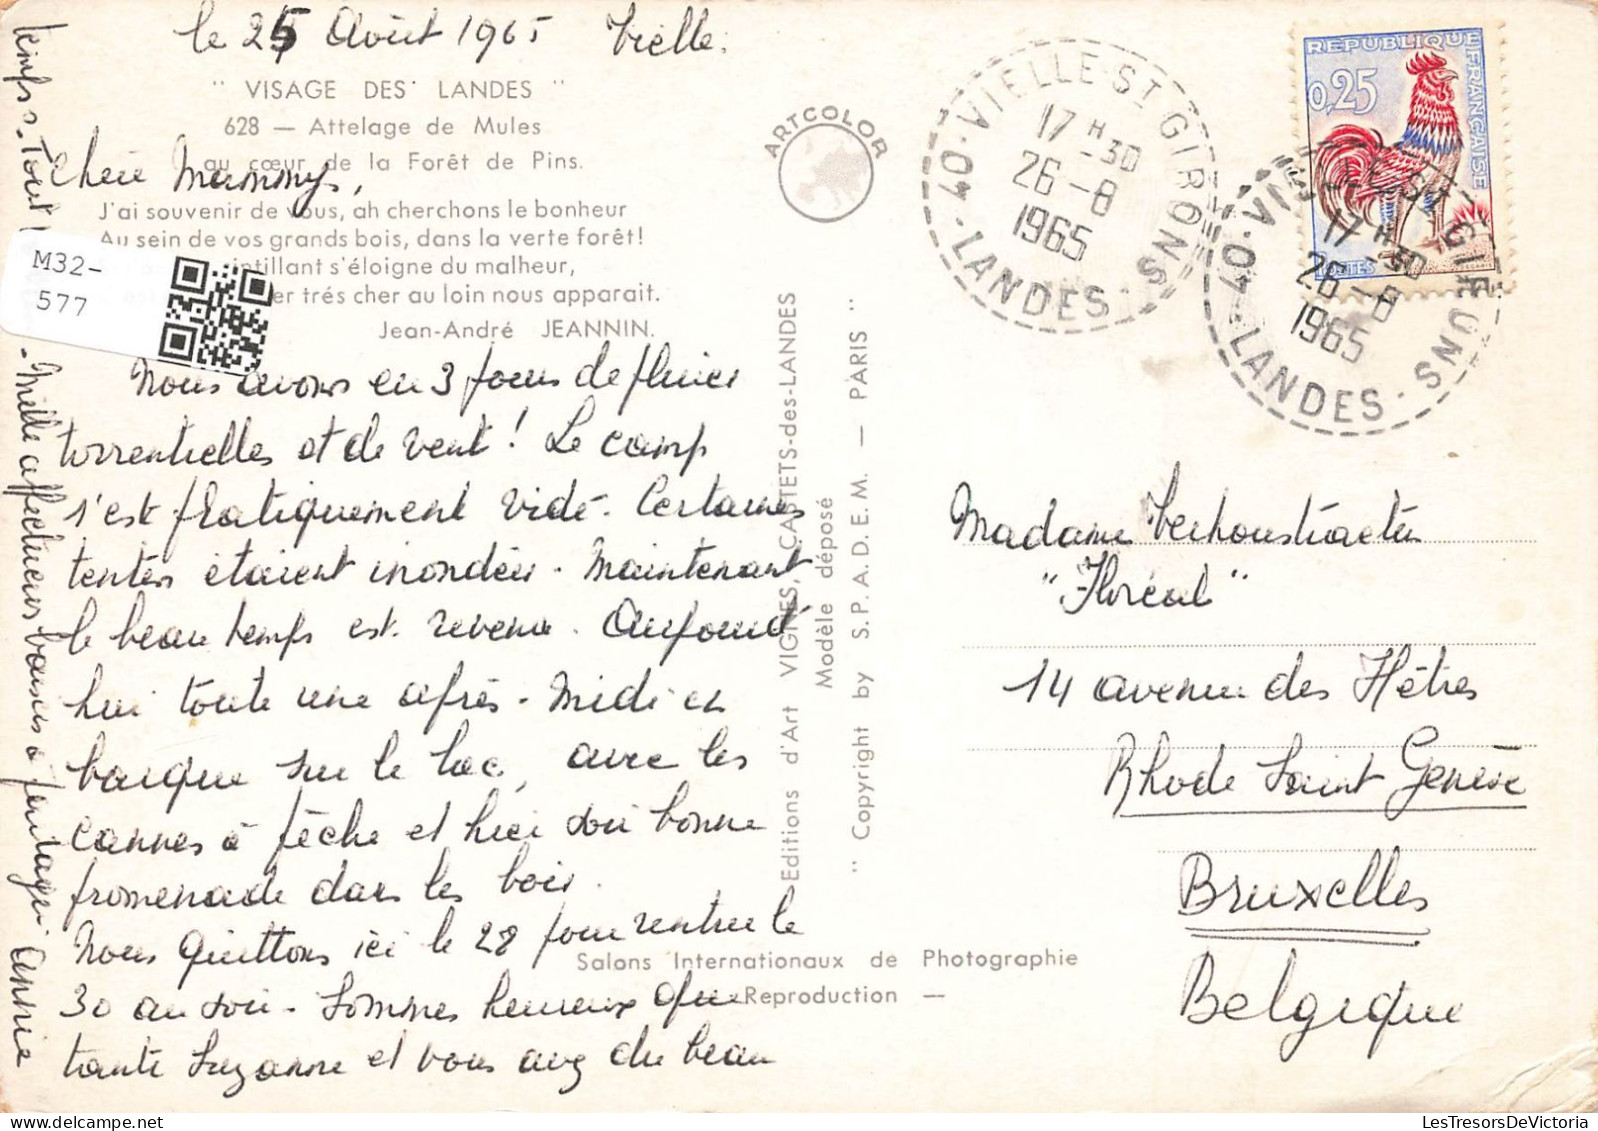 le 25 Août 1965 Vielle.
" VISAGE DES LANDES "
628 — Attelage de Mules
au cœur de la Forêt de Pins.
Chère Mammy,
J'ai souvenir de vous, ah cherchons le bonheur
Au sein de vos grands bois, dans la verte forêt!
intillant s'éloigne du malheur,
er trés cher au loin nous apparait.
Jean-André JEANNIN.
M32-
577
Nous avons eu 3 jours de pluies
torrentielles et de vent ! Le camp
s'est pratiquement vidé. Certaines
tentes étaient inondées. Maintenant
le beau temps est revenu. Aujourd'
hui toute une après-midi en
barque sur le lac, avec les
cannes à pêche et hier soir bonne
promenade dans les bois.
Nous quittons ici le 28 pour rentrer le
30 au soir. Sommes heureux que
tante Suzanne et vous avez du beau
temps. Tout
Mille affectueux baisers à partager Annie
Editions d'Art VIGNES, CASTETS-des-LANDES
Modèle déposé
" Copyright by S. P. A. D. E. M. — PARIS "
Salons Internationaux de Photographie
Reproduction —
ARTCOLOR
40 - VIELLE-ST GIRONS - LANDES
17 H 30
26 - 8
1965
REPUBLIQUE FRANÇAISE
0,25
POSTES
40 - VIELLE-ST GIRONS - LANDES
17 H 30
26 - 8
1965
Madame Verhoustraeten
"Floréal"
14 avenue des Hêtres
Rhode Saint Genèse
Bruxelles
Belgique
LesTresorsDeVictoria